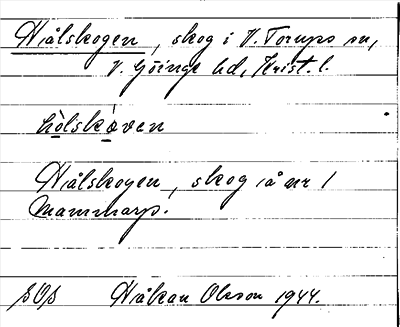 Hålskogen, skog i V. Torups sn,
V. Göinge hd, Krist. l.
hòlskòven
Hålskogen, skog å nr 1
Mammarp.
SOS Håkan Olsson 1944.